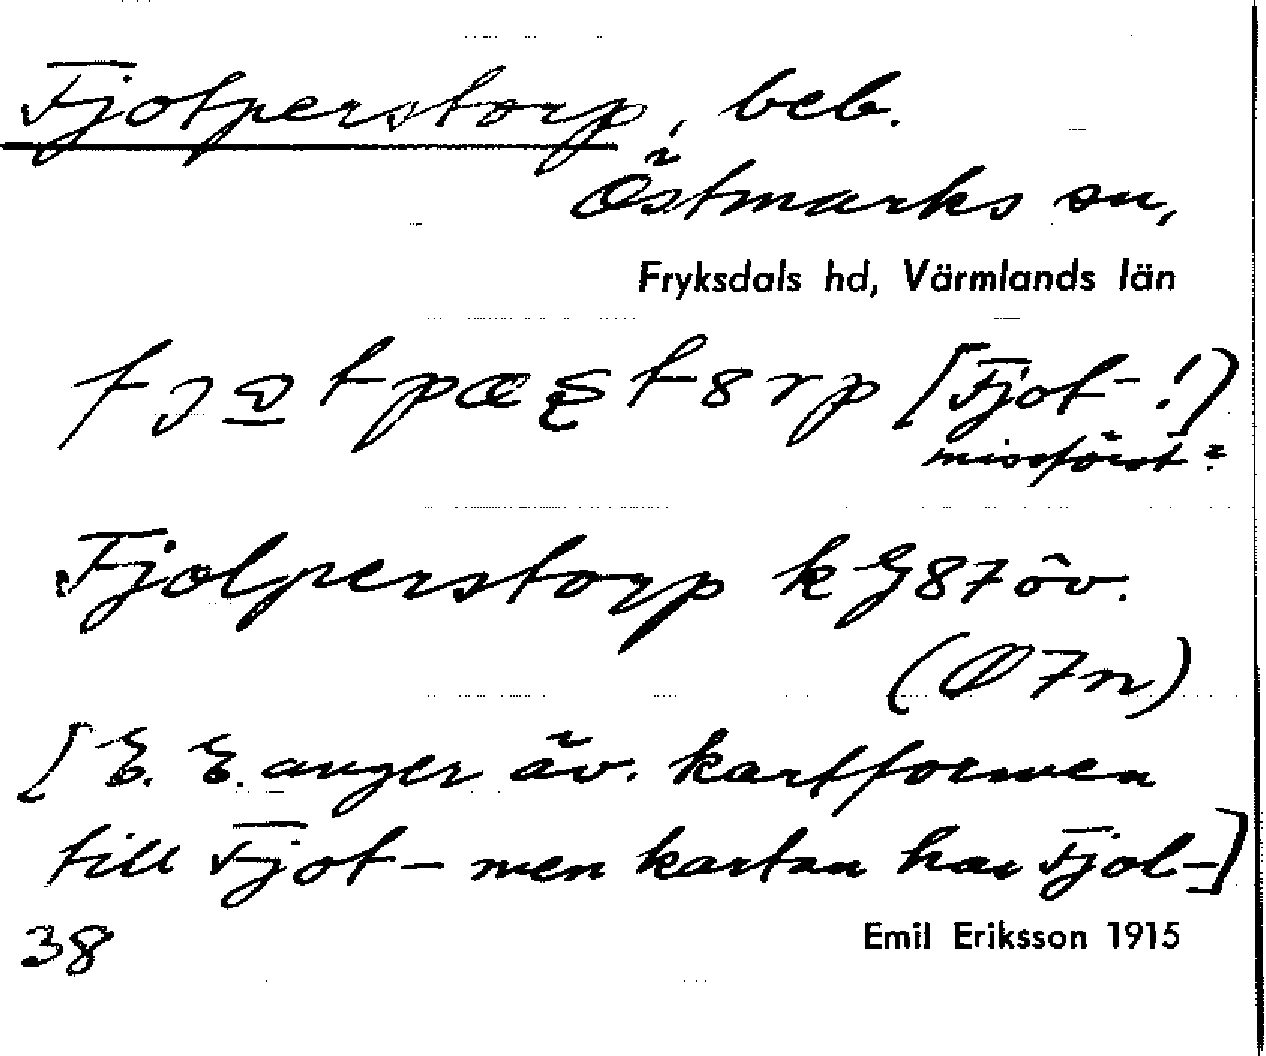 Fjotperstorp, beb.
Östmarks sn,
Fryksdals hd, Värmlands län
[Fjot-!]
missförst?
Fjolperstorp k G 87 öv.
(Ø 7 n)
[E. E. anger äv. kartformen
till Fjot- men kartan har Fjol-]
38
Emil Eriksson 1915